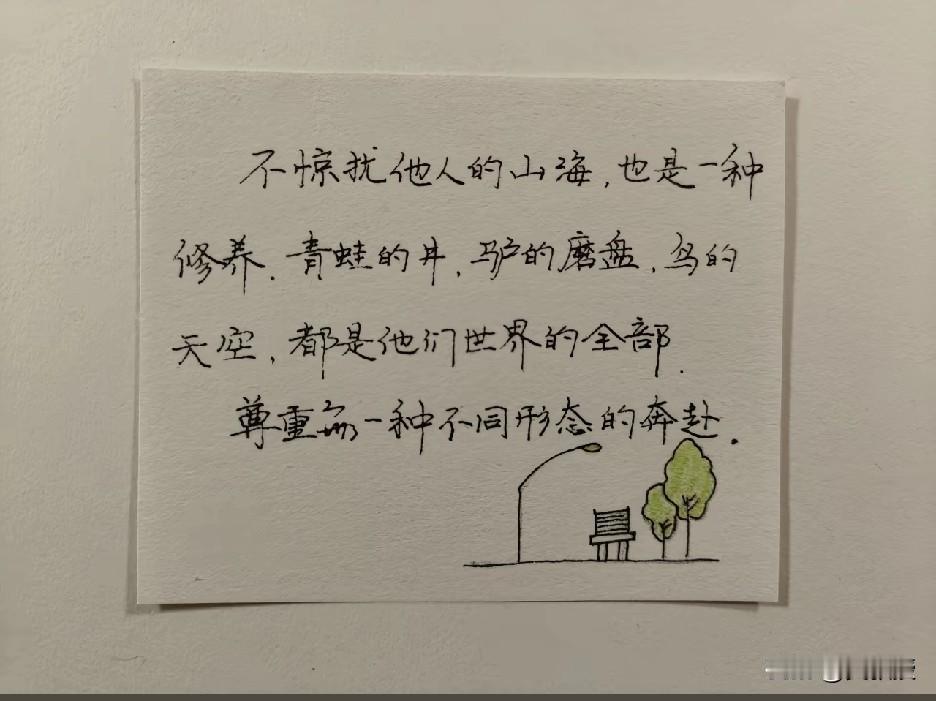 不惊扰他人的山海,也是一种
修养.青蛙的井,驴的磨盘,鸟的
天空,都是他们世界的全部.
尊重每一种不同形态的奔赴.